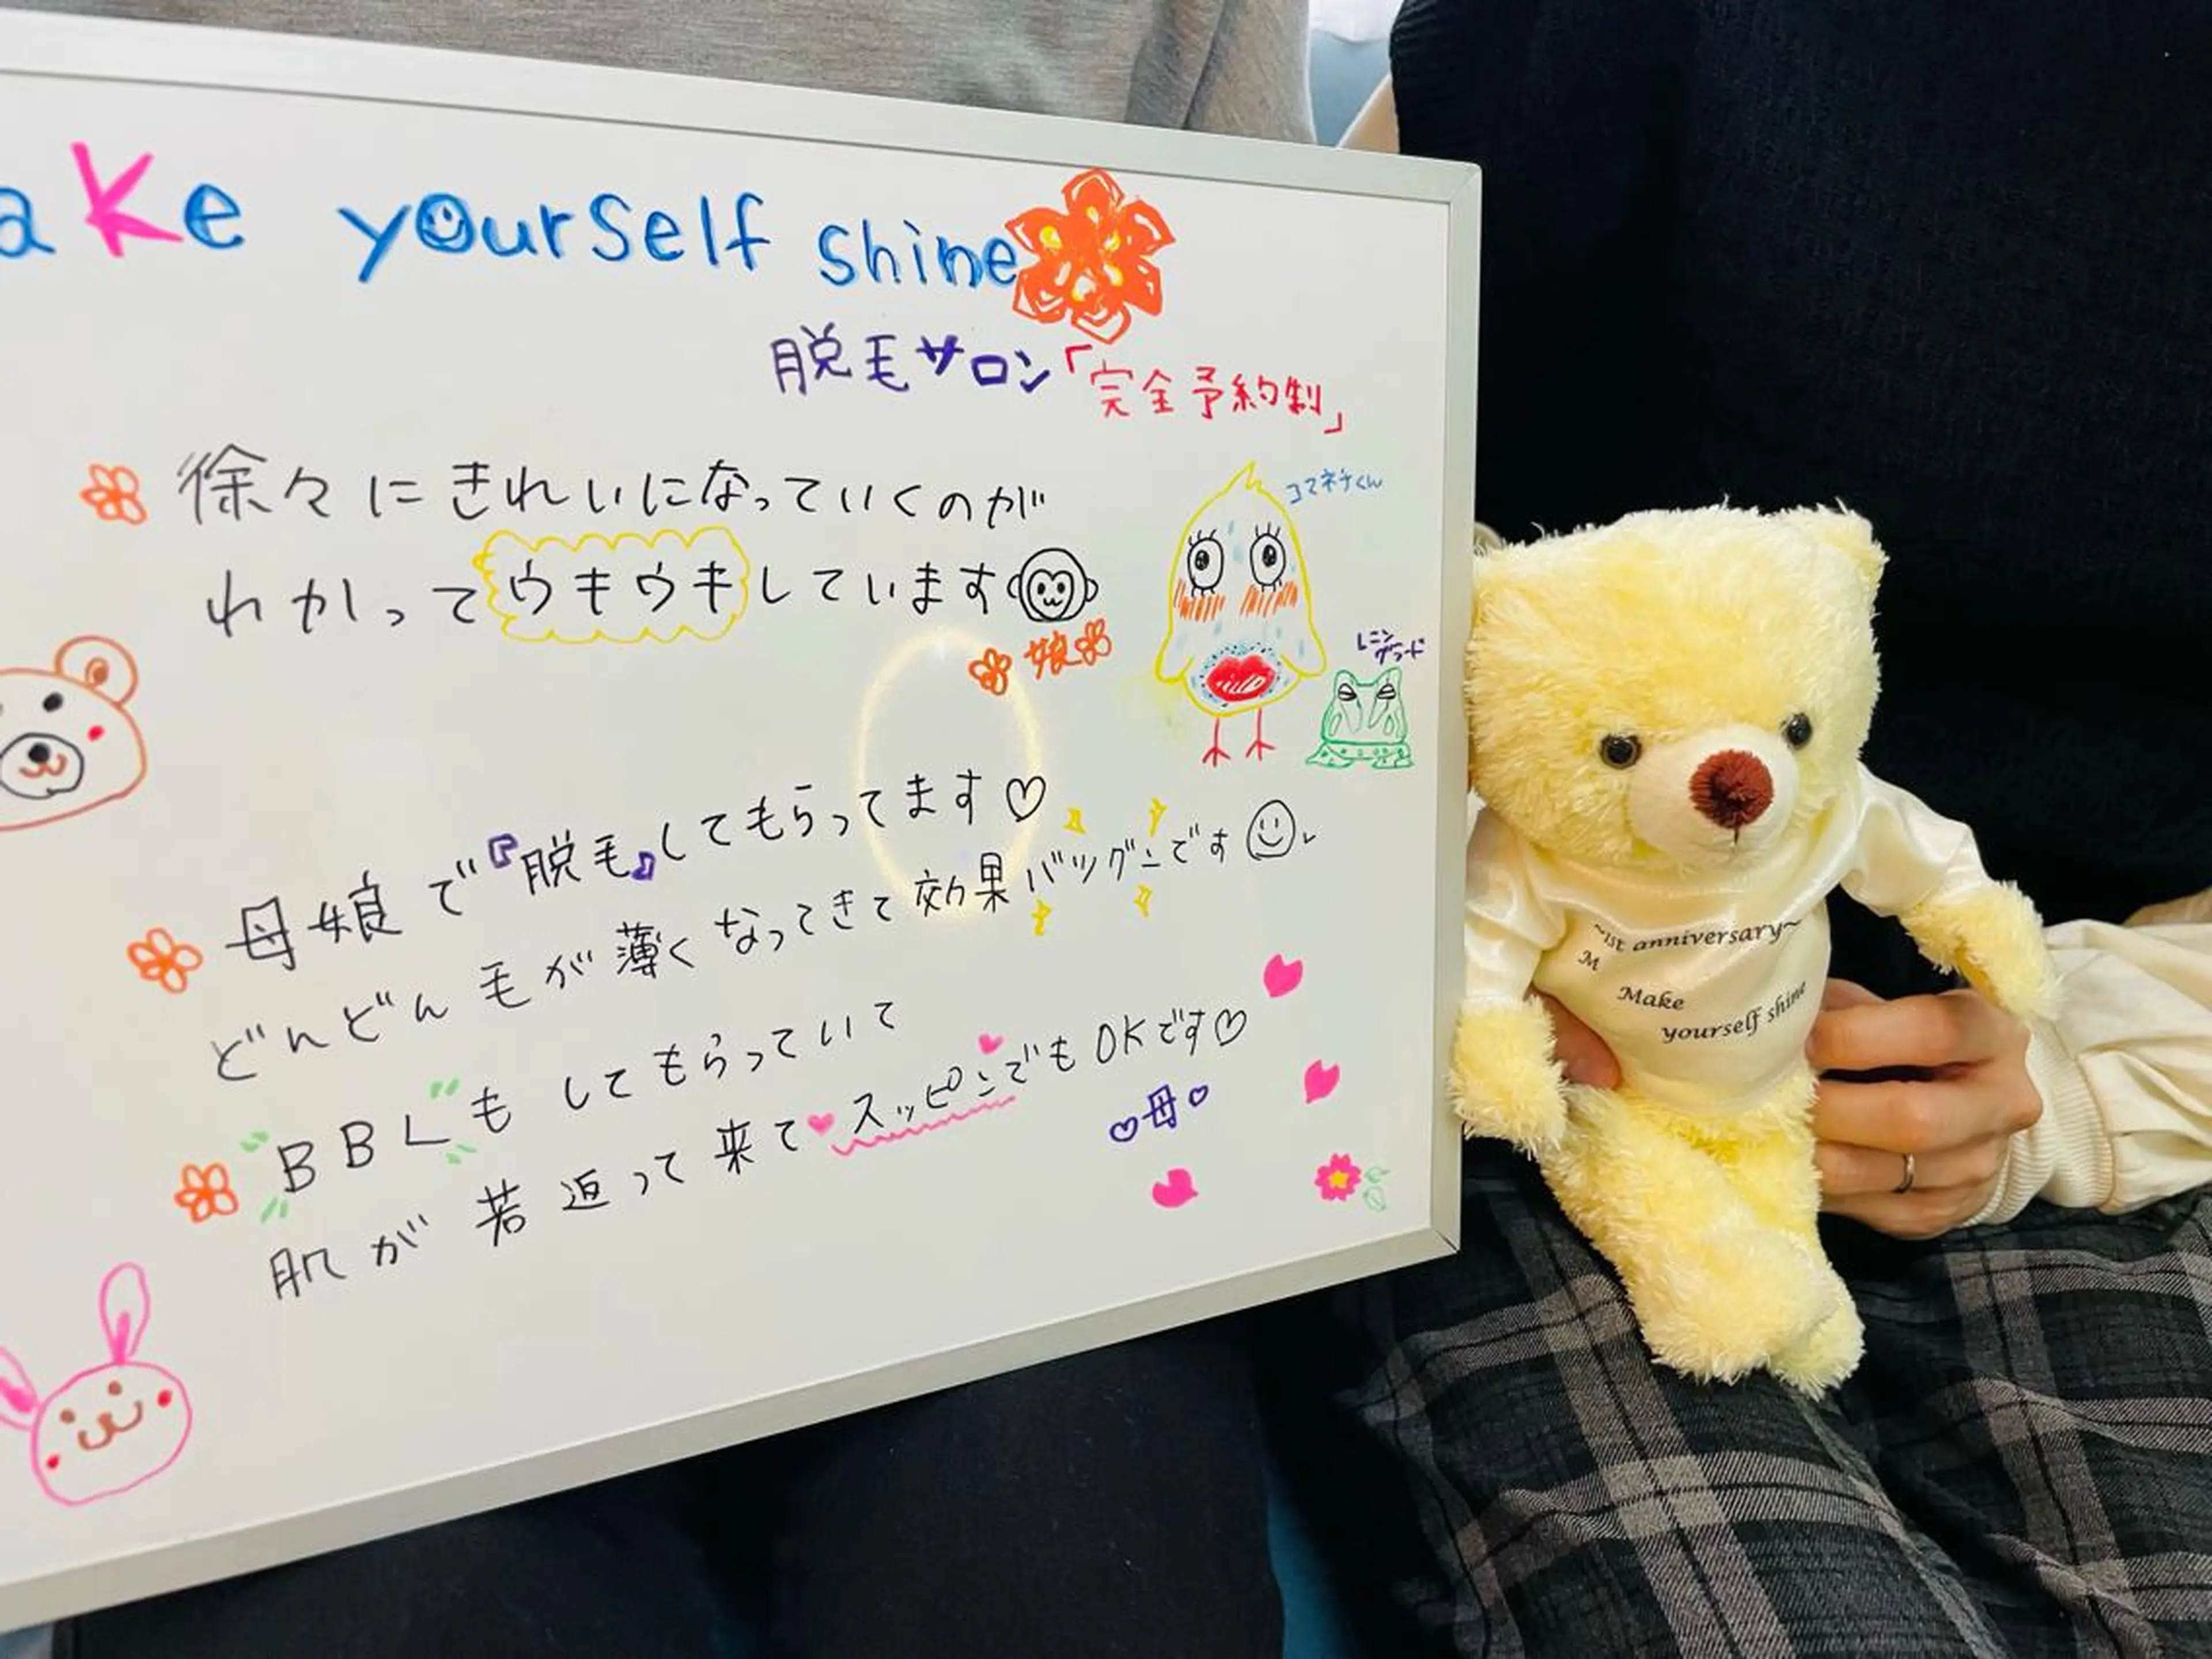 ake yourself shine
脱毛サロン「完全予約制」
徐々にきれいになっていくのが
わかってウキウキしています
娘
コマネチくん
レニン
グラード
母娘で『脱毛』してもらってます♡
どんどん毛が薄くなってきて効果バツグンです
BBLもしてもらっていて
肌が若返って来て♥スッピン♥でもOKです♡
♡母♡
~1st anniversary~
M
Make
yourself shine